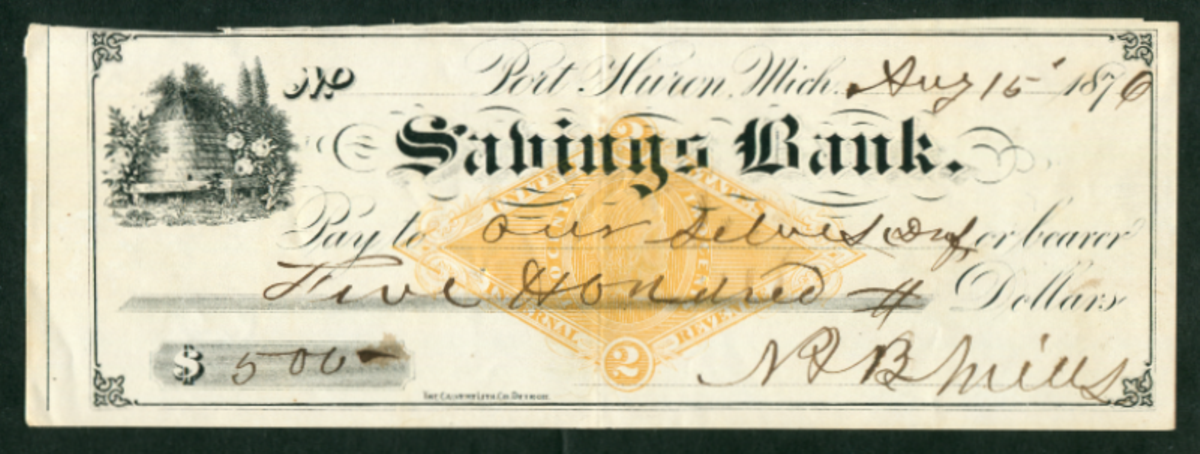 No Port Huron, Mich. Aug 15 1876
Savings Bank.
Pay to Our Selves or bearer
Five Hondred # Dollars
$ 500-
B Mills
2
INTERNAL REVENUE
2
THE CALVERT LITH. CO. DETROIT